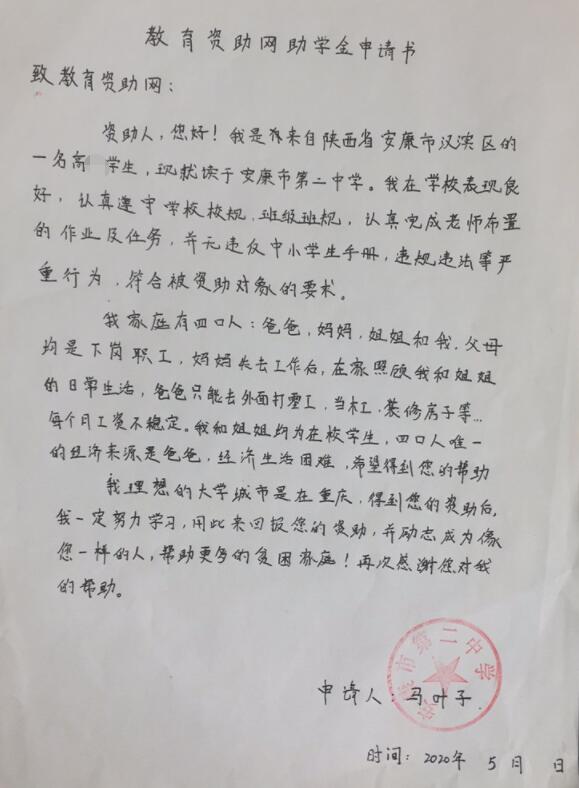 教育资助网助学金申请书
致教育资助网：
资助人，您好！我是来自陕西省安康市汉滨区的
一名高 学生，现就读于安康市第二中学。我在学校表现良
好，认真遵守学校校规，班级班规，认真完成老师布置
的作业及任务，并无违反中小学生手册，违规违法等严
重行为，符合被资助对象的要求。
我家庭有四口人：爸爸，妈妈，姐姐和我，父母
均是下岗职工，妈妈失去工作后，在家照顾我和姐姐
的日常生活，爸爸只能去外面打零工，当木工，装修房子等...
每个月工资不稳定。我和姐姐均为在校学生，四口人唯一
的经济来源是爸爸，经济生活困难，希望得到您的帮助
我理想的大学城市是在重庆，得到您的资助后，
我一定努力学习，用此来回报您的资助，并励志成为像
您一样的人，帮助更多的贫困家庭！再次感谢您对我
的帮助。
安康市第二中学
申请人：马叶子
时间：2020年 5 月 日